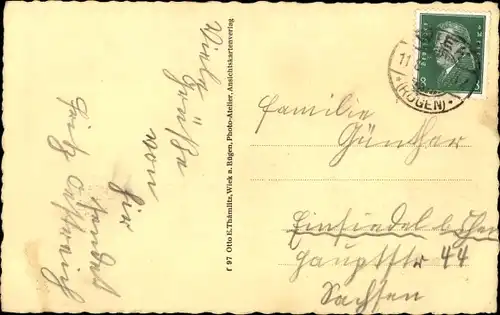 Viele
Grüße
von
hier
sendet
Fritz
f 97 Otto E. Thämlitz, Wiek a. Rügen, Photo-Atelier, Ansichtskartenverlag
11.
(RÜGEN)
8
Familie
Günther
Einsiedel b/Chem
Hauptstr 44
Sachsen